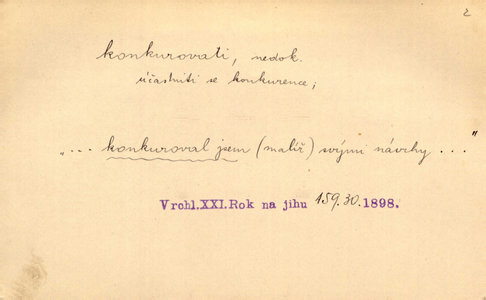 2
konkurovati, nedok.
účastniti se konkurence;
„... konkuroval jsem (malíř) svými návrhy ..."
Vrchl.XXI.Rok na jihu 159.30.1898.